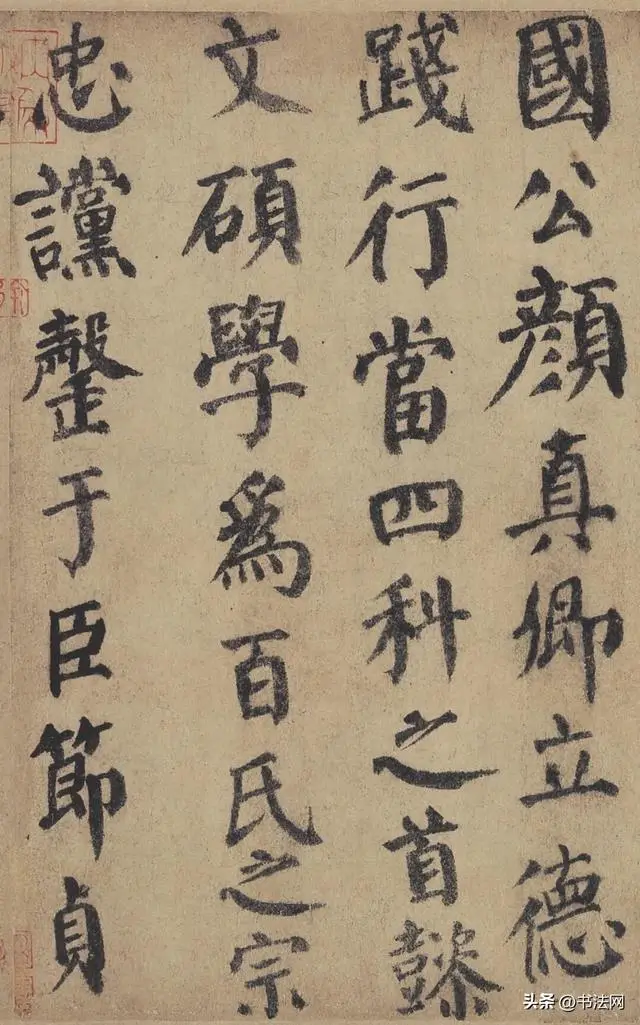 國公顏真卿立德
踐行當四科之首懿
文碩學為百氏之宗
忠讜罄于臣節貞
头条 @书法网